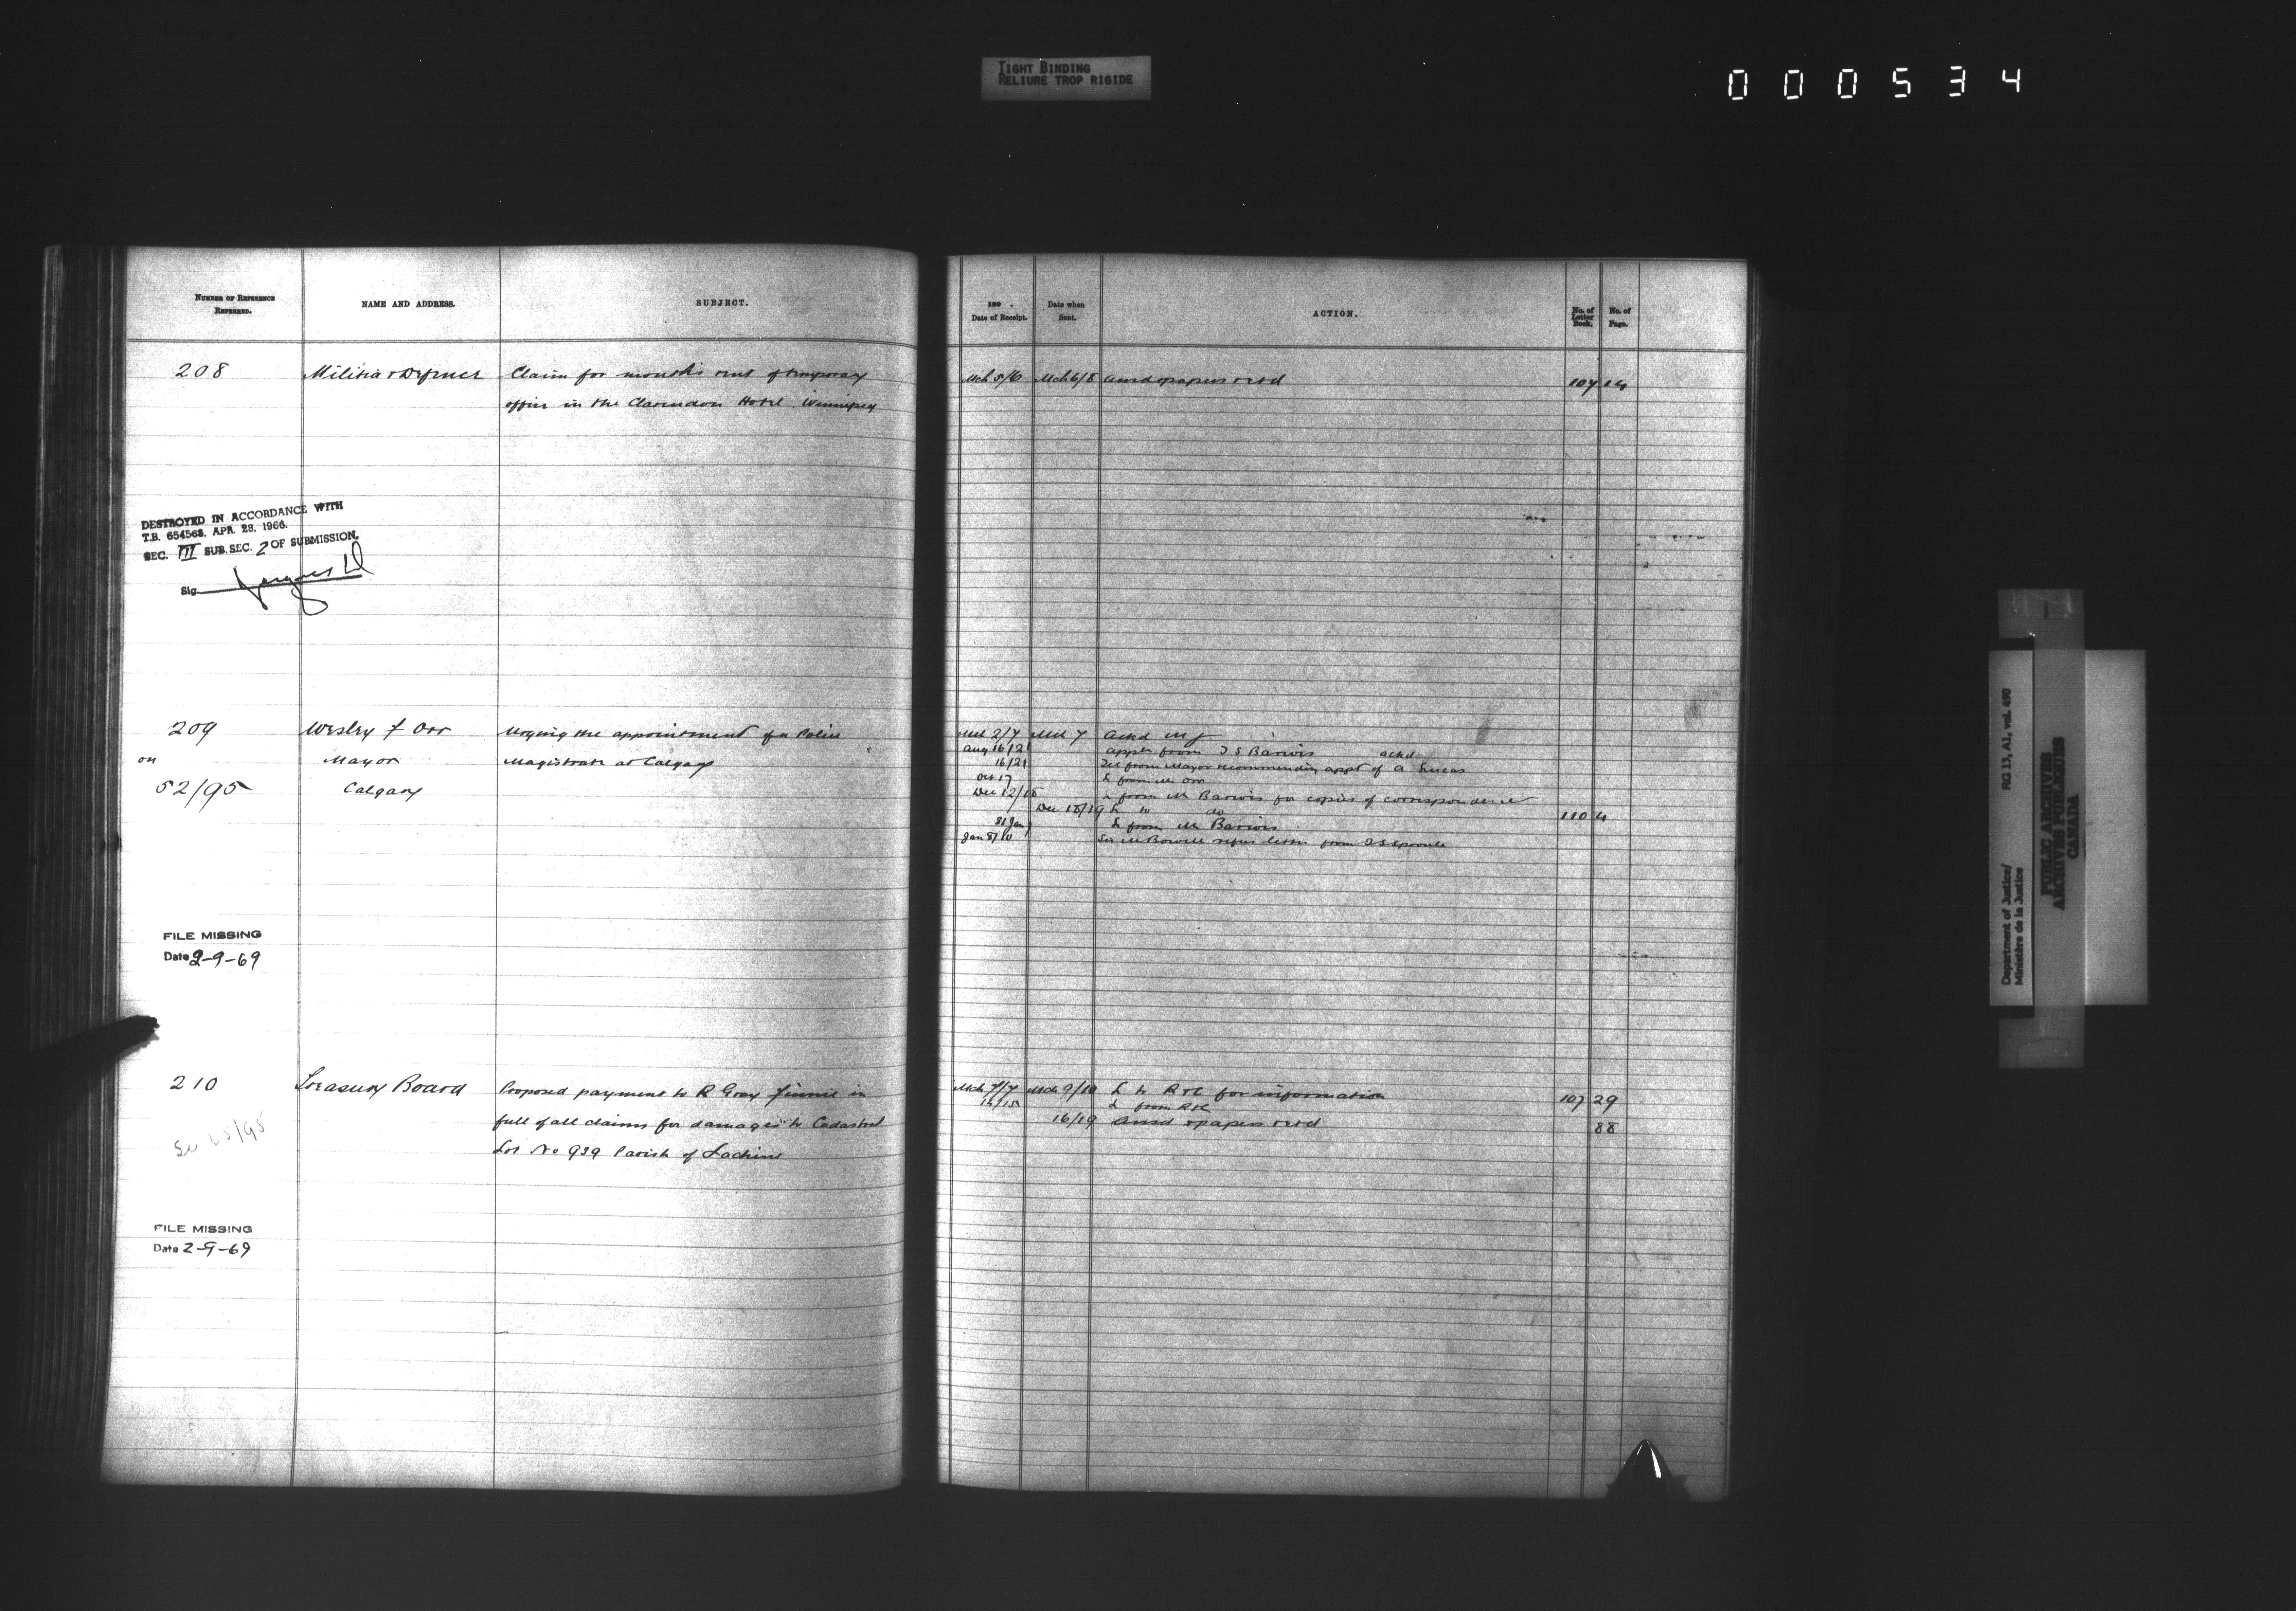 TIGHT BINDING
RELIURE TROP RIGIDE
000534
NUMBER OF REFERENCE
REFERRED.
NAME AND ADDRESS.
SUBJECT.
208
Militia & Defence
Claim for month's rent of temporary
office in the Clarendon Hotel Winnipeg
DESTROYED IN ACCORDANCE WITH
T.B. 654568, APR. 28, 1966.
SEC. III SUB. SEC. 2 OF SUBMISSION.
Sig.
209
on
52/95
Wesley F Orr
Mayor
Calgary
Urging the appointment of a Police
Magistrate at Calgary
FILE MISSING
Date 2-9-69
210
See /95
Treasury Board
Proposed payment to R Gray Finnie in
full of all claims for damages to Cadastral
Lot No 939 Parish of Lachine
FILE MISSING
Date 2-9-69
189 .
Date of Receipt.
Date when
Sent.
ACTION.
No. of
Letter
Book.
No. of
Page.
Mch 5/6 Mch 6/8 Ansd & papers retd 107 14
Mch 2/7 Mch 7 Ackd MJ
Aug 16/21 Appln from J S Barwis ackd
16/21 Tel from Mayor recommending appt of A Lucas
Oct 17 L from Mr Orr
Dec 12/18 L from Mr Barwis for copies of correspondence
Dec 18/19 L to do 110 4
L from Mr Barwis
Jan 8/10 Sir M Bowell refers letter from T S Sproule
Mch 7/7 Mch 9/10 L to R&C for information 107 29
14/15 L from R&C
16/19 Ansd & papers retd 88
Department of Justice/
Ministère de la Justice
RG 13, A1, vol. 490
PUBLIC ARCHIVES
ARCHIVES PUBLIQUES
CANADA